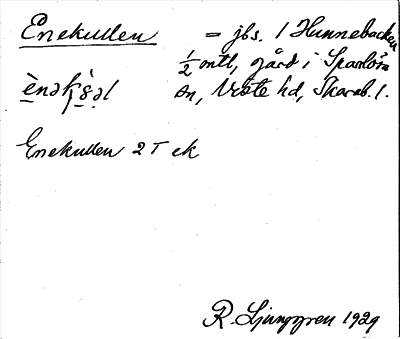 Enekullen = jbs. 1 Hunnebacken
1/2 mtl, gård i Sparlösa
ènəkụ̀ḷəl sn, Viste hd, Skarab. l.
Enekullen 2 T ek
R. Ljunggren 1929